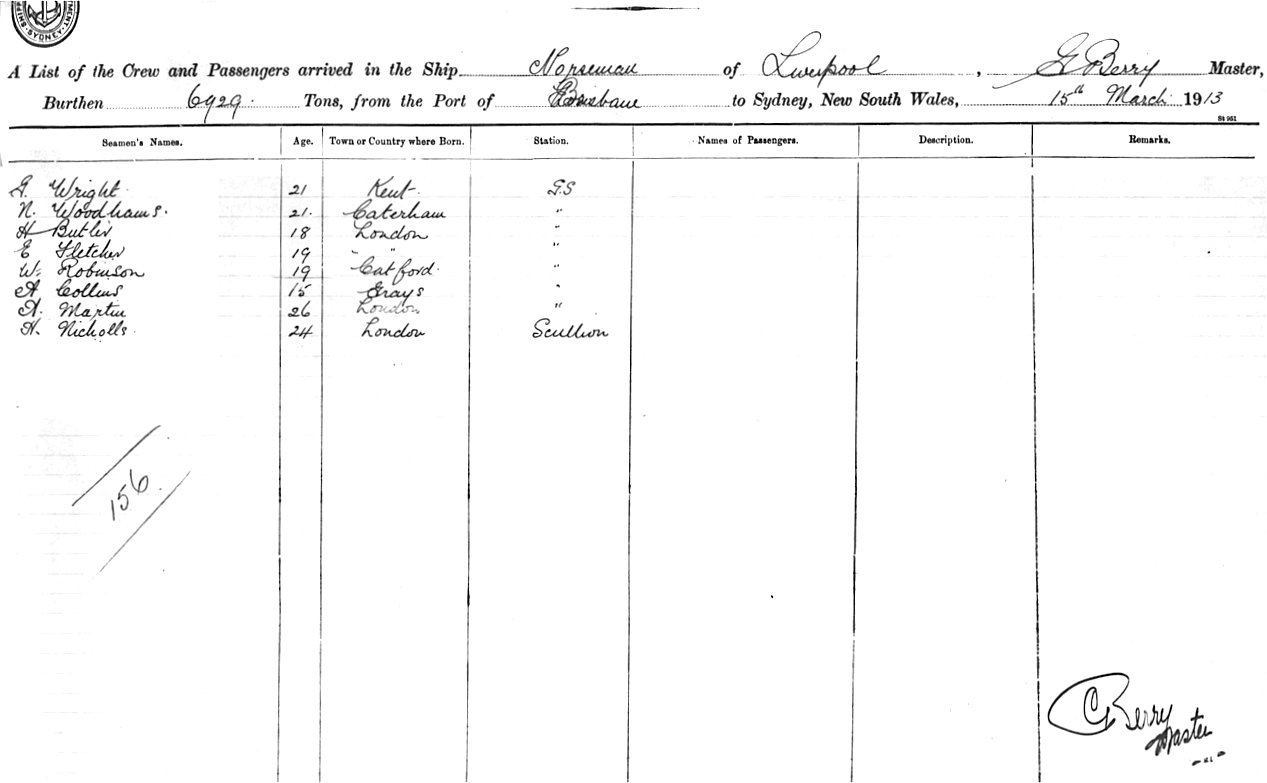 MENT. SYDNEY. SHIPP
A List of the Crew and Passengers arrived in the Ship Norseman of Liverpool, G Berry Master,
Burthen 6929. Tons, from the Port of Brisbane to Sydney, New South Wales, 15th March 1913
St 951
Seamen's Names. Age. Town or Country where Born. Station. Names of Passengers. Description. Remarks.
G. Wright. 21 Kent. G.S
N. Woodhams. 21. Caterham "
H Butler 18 London "
E Fletcher 19 " " "
W. Robinson 19 Catford. "
A Collins 15 Grays "
A. Martin 26 London "
H. Nicholls. 24 London Scullion
156
G Berry
Master